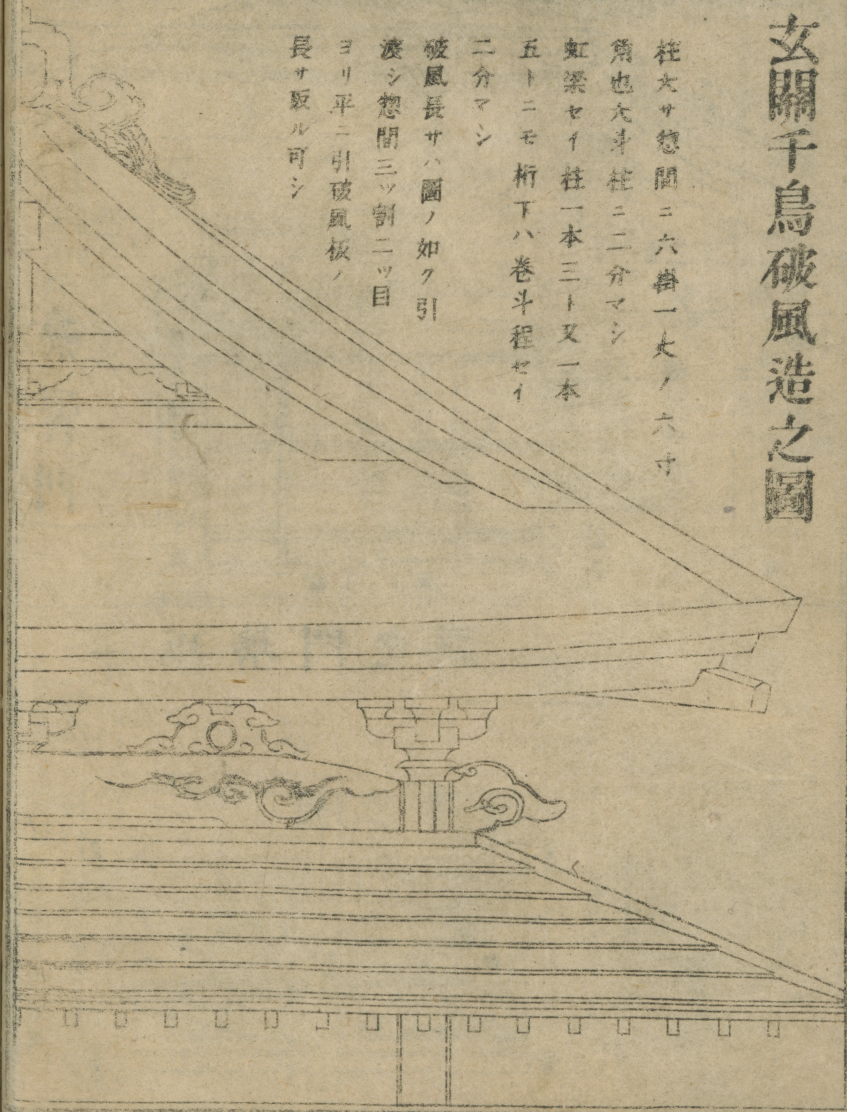 玄關千鳥破風造之圖
柱大サ惣間ニ六掛一丈ノ六寸
角也大斗柱ニ二分マシ
虹梁セイ柱一本三ト又一本
五トニモ桁下ハ巻斗程セイ
二分マシ
破風長サハ圖ノ如ク引
渡シ惣間三ツ割二ツ目
ヨリ平ニ引破風板ノ
長サ取ル可シ